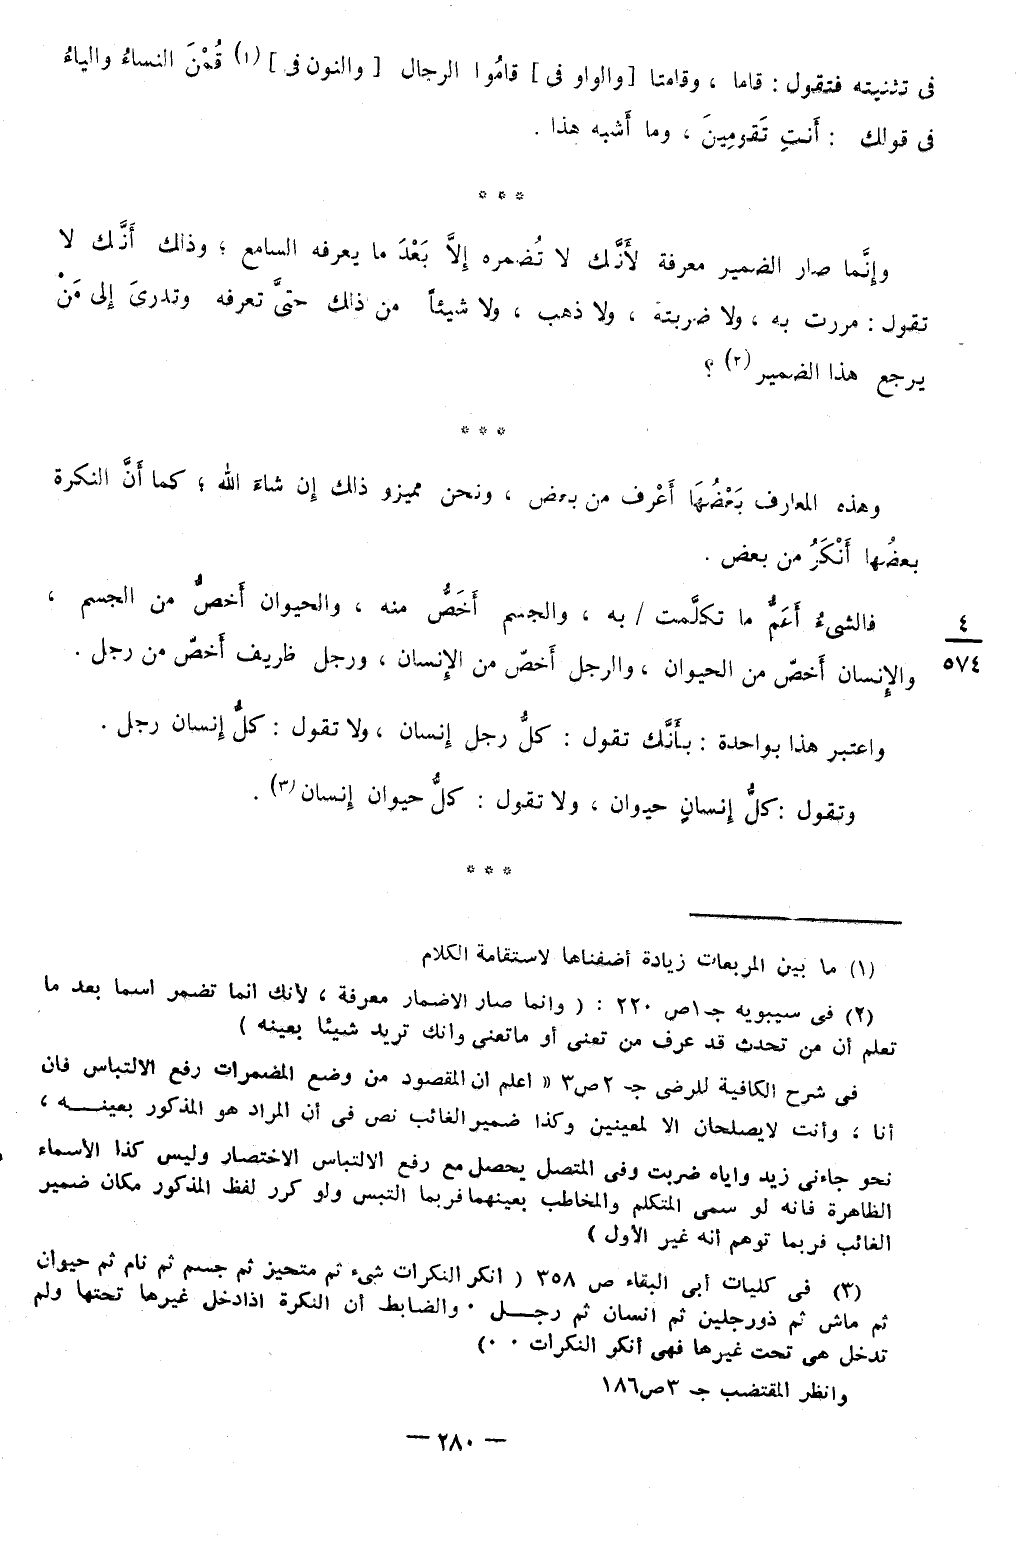 فى تثنيته فتقول : قاما ، وقامتا [ والواو فى ] قامُوا الرجال [ والنون فى ] (١) قُمْنَ النساءُ والياءُ
فى قولك : أَنتِ تَقومِينَ ، وما أَشبه هذا .
* * *
وإِنَّما صار الضمير معرفة لأَنَّك لا تُضمره إِلاَّ بَعْدَ ما يعرفه السامع ؛ وذالك أَنَّك لا
تقول : مررت به ، ولا ضربته ، ولا ذهب ، ولا شيئاً من ذالك حتىَّ تعرفه وتدرىَ إِلى مَنْ
يرجع هذا الضمير (٢) ؟
* * *
وهذه المعارف بَعْضُهَا أَعْرف من بعض ، ونحن مميزو ذالك إِن شاءَ الله ؛ كما أَنَّ النكرة
بعضُها أَنْكَرُ من بعض .
فالشىءُ أَعَمُّ ما تكلَّمت / به ، والجسم أَخَصُّ منه ، والحيوان أَخصُّ من الجسم ،
٤
٥٧٤
والإِنسان أَخصّ من الحيوان ، والرجل أَخصّ من الإِنسان ، ورجل ظريف أَخصّ من رجل .
واعتبر هذا بواحدة : بأَنَّك تقول : كلُّ رجل إِنسان ، ولا تقول : كلُّ إِنسان رجل .
وتقول : كلُّ إِنسانٍ حيوان ، ولا تقول : كلُّ حيوان إِنسان (٣) .
* * *
(١) ما بين المربعات زيادة أضفناها لاستقامة الكلام
(٢) فى سيبويه جـ ١ ص ٢٢٠ : ( وانما صار الاضمار معرفة ، لأنك انما تضمر اسما بعد ما
تعلم أن من تحدث قد عرف من تعنى أو ماتعنى وانك تريد شيئا بعينه )
فى شرح الكافية للرضى جـ ٢ ص ٣ « اعلم ان المقصود من وضع المضمرات رفع الالتباس فان
أنا ، وأنت لايصلحان الا لمعينين وكذا ضمير الغائب نص فى أن المراد هو المذكور بعينـــه ،
نحو جاءنى زيد واياه ضربت وفى المتصل يحصل مع رفع الالتباس الاختصار وليس كذا الأسماء
الظاهرة فانه لو سمى المتكلم والمخاطب بعينهما فربما التبس ولو كرر لفظ المذكور مكان ضمير
الغائب فربما توهم أنه غير الأول )
(٣) فى كليات أبى البقاء ص ٣٥٨ ( أنكر النكرات شىء ثم متحيز ثم جسم ثم نام ثم حيوان
ثم ماش ثم ذورجلين ثم انسان ثم رجــل ٠ والضابط أن النكرة اذادخل غيرها تحتها ولم
تدخل هى تحت غيرها فهى أنكر النكرات ٠ ٠)
وانظر المقتضب جـ ٣ ص ١٨٦
— ٢٨٠ —